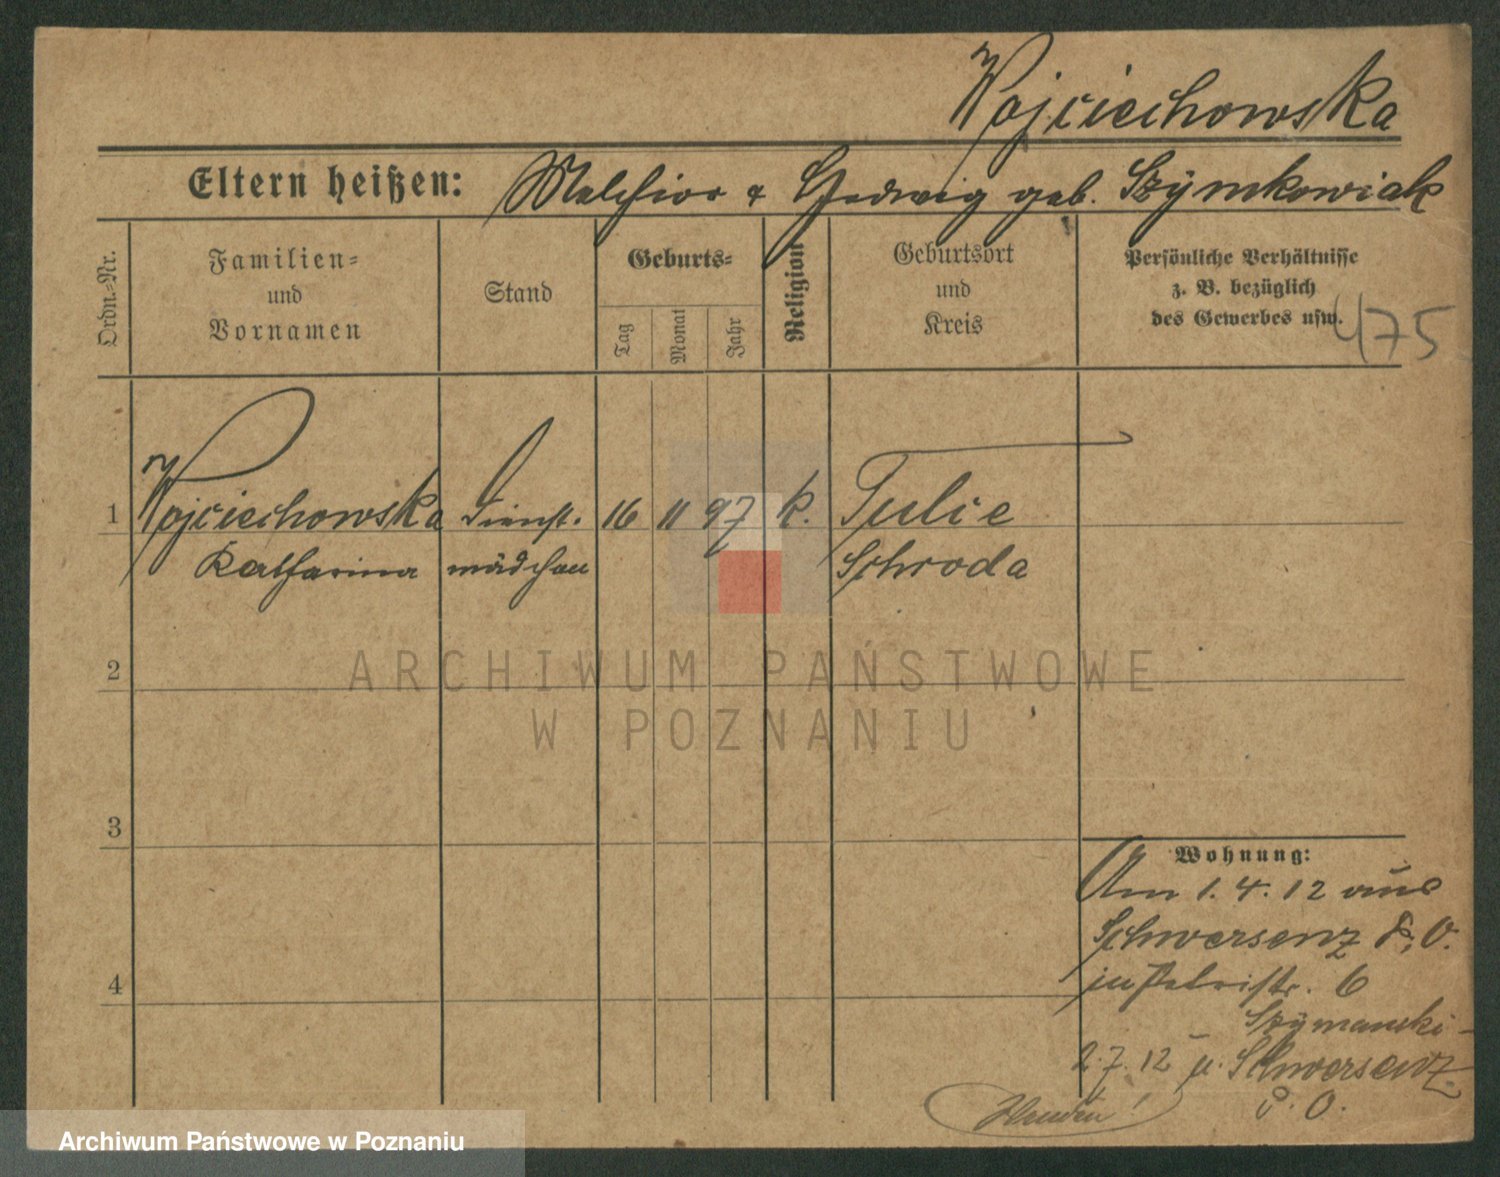 Wojciechowska
Eltern heißen: Melchior & Hedwig geb. Szymkowiak
Ordn.-Nr.
Familien-
und
Vornamen
Stand
Geburts-
Tag
Monat
Jahr
Religion
Geburtsort
und
Kreis
Persönliche Verhältnisse
z. B. bezüglich
des Gewerbes usw.
475
1 Wojciechowska Dienst- 16 11 97 k. Tulce
Katharina mädchen Schroda
2
ARCHIWUM PAŃSTWOWE
W POZNANIU
3
Wohnung:
Am 1.4.12 aus
Schwersenz P. O.
in Petristr. 6
4
Szymanski -
2.7.12 n. Schwersenz
P. O.
Archiwum Państwowe w Poznaniu